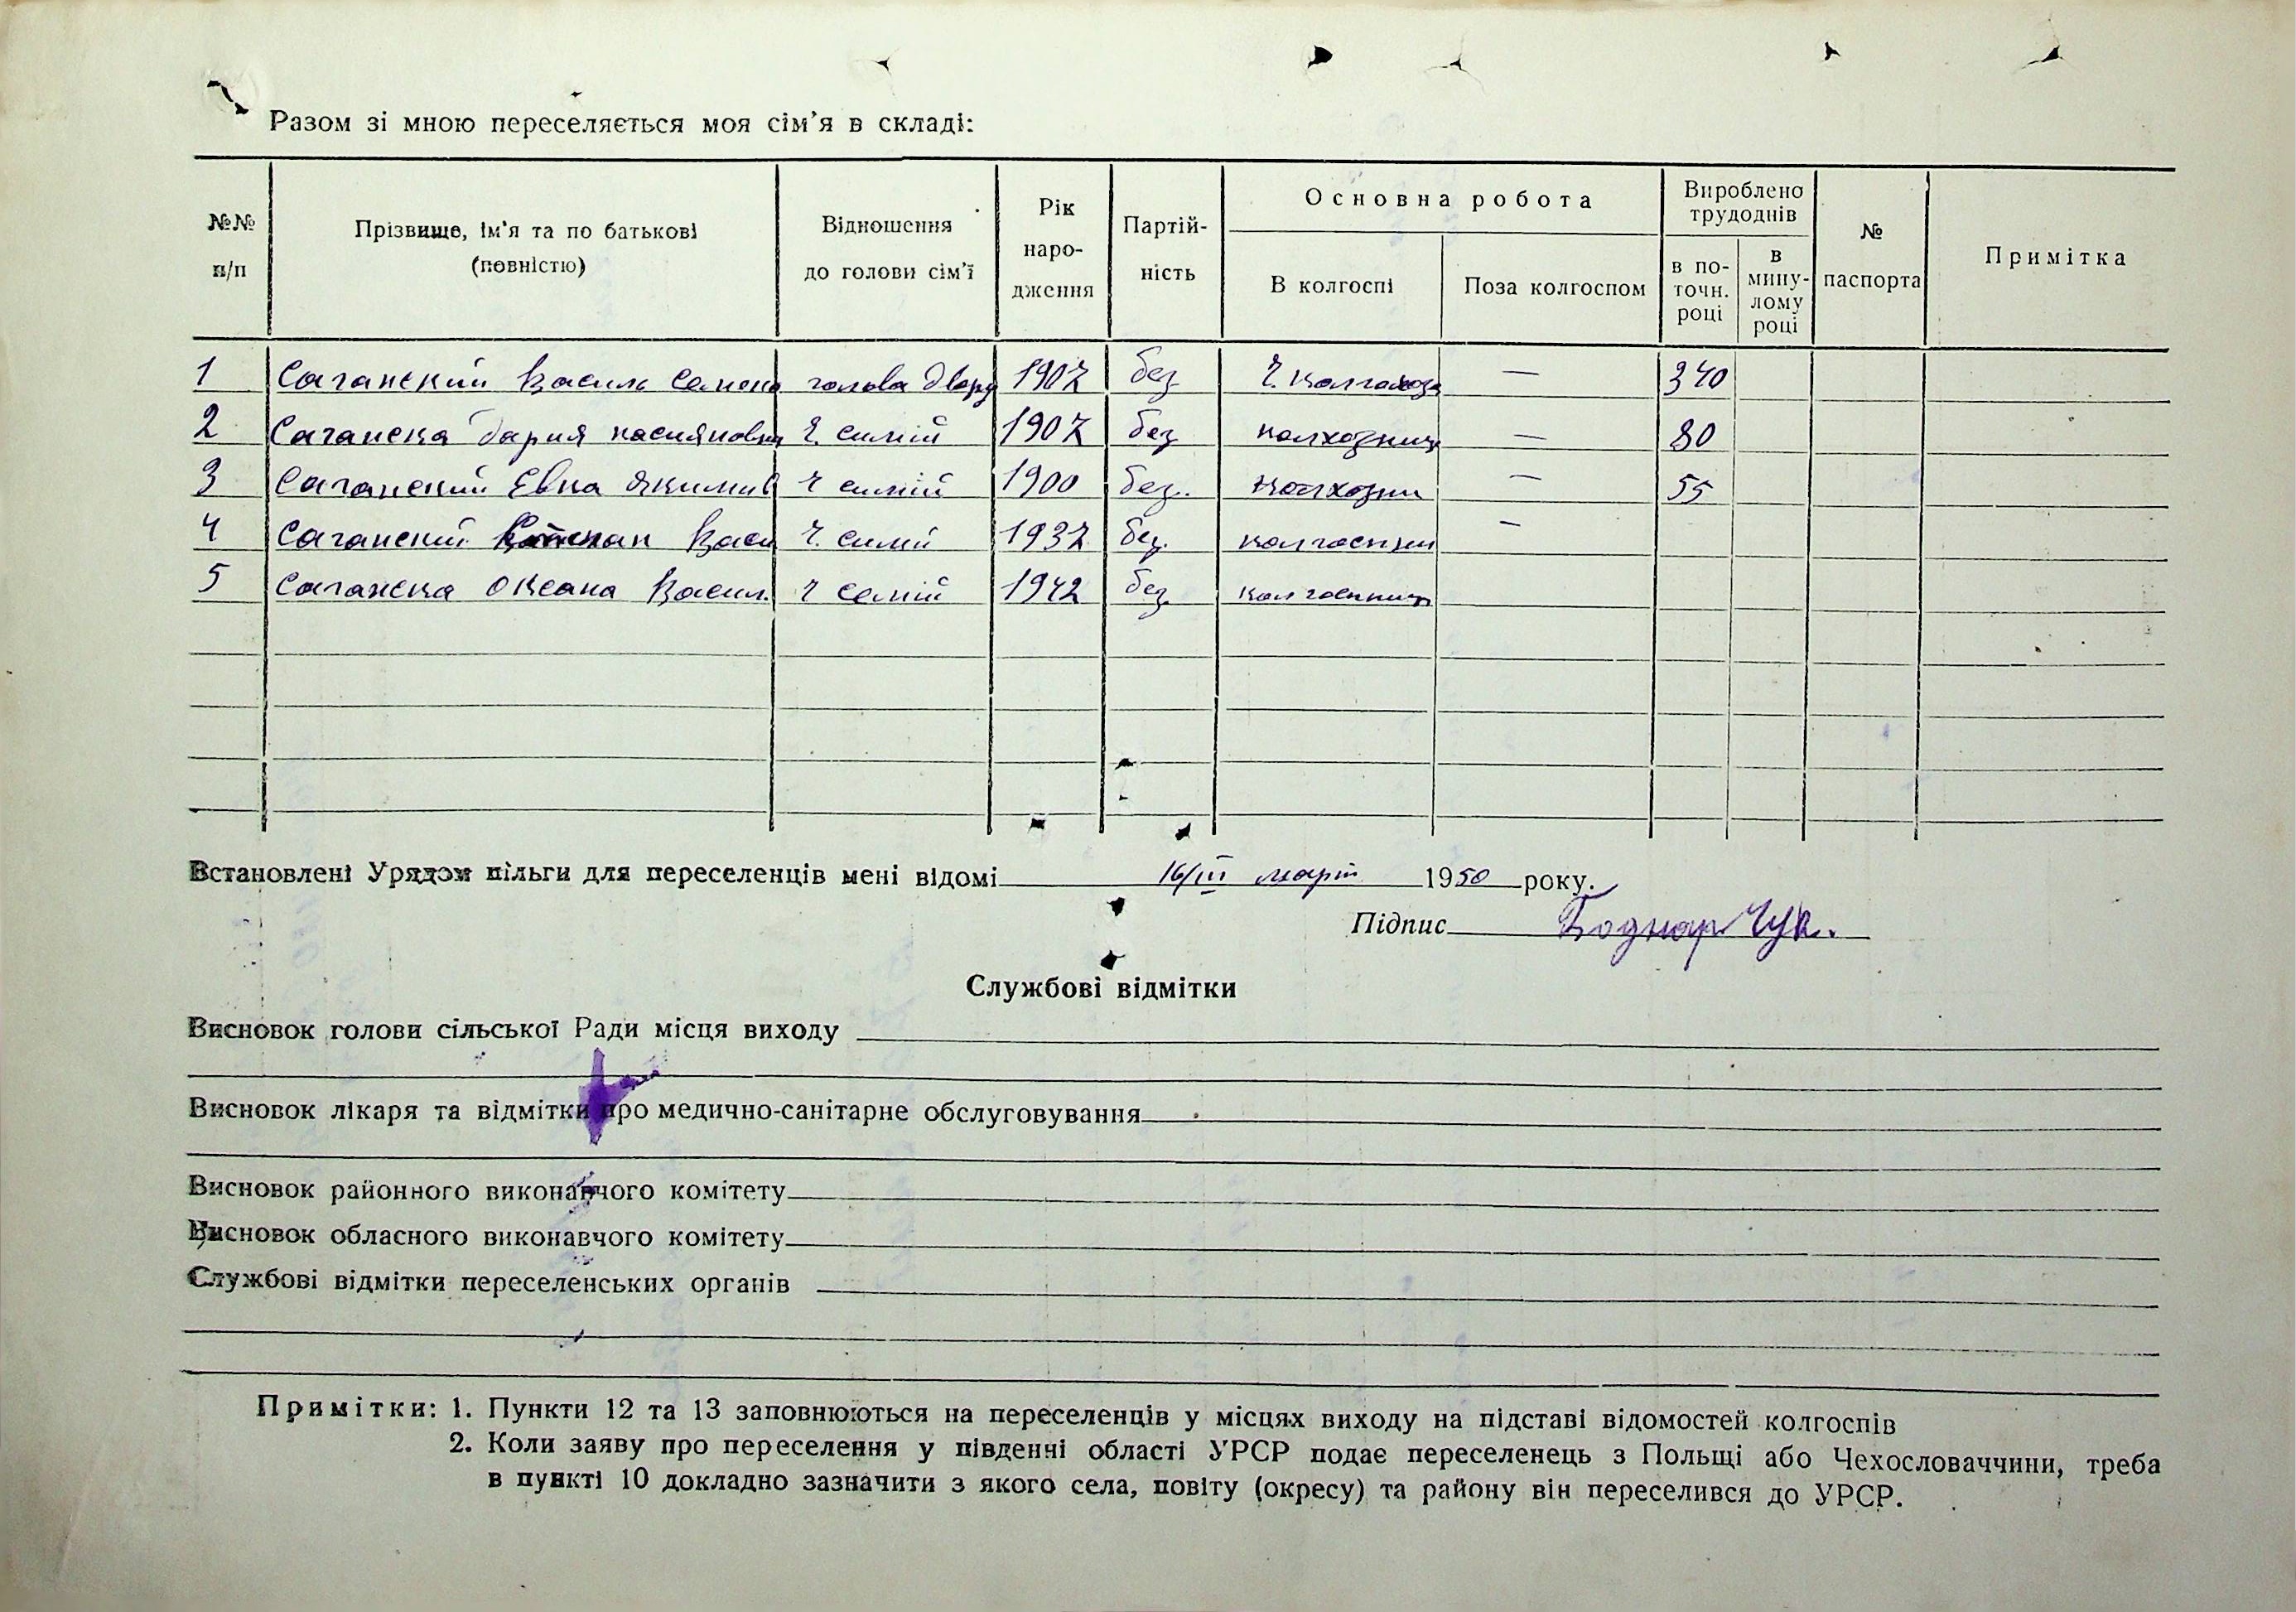 Разом зі мною переселяється моя сім'я в складі:
№№ п/п
Прізвище, ім'я та по батькові (повністю)
Відношення до голови сім'ї
Рік народження
Партійність
Основна робота
В колгоспі
Поза колгоспом
Вироблено трудоднів
в поточн. році
в минулому році
№ паспорта
Примітка
1 Саганский Василь Семено голова двору 1907 без Ч. колгоспа — 340
2 Саганска Дария Касияновна Ч. симії 1907 без колхозниц — 80
3 Саганский Евка Якимив ч симії 1900 без. колхозни — 55
4 Саганский Степан Васи Ч. симії 1937 без. колгоспни —
5 Саганска Оксана Васил. ч семії 1942 без колгоспниц
Встановлені Урядом пільги для переселенців мені відомі 16/III март 1950 року.
Підпис Боднарчук.
Службові відмітки
Висновок голови сільської Ради місця виходу
Висновок лікаря та відмітки про медично-санітарне обслуговування
Висновок районного виконавчого комітету
Висновок обласного виконавчого комітету
Службові відмітки переселенських органів
Примітки: 1. Пункти 12 та 13 заповнюються на переселенців у місцях виходу на підставі відомостей колгоспів
2. Коли заяву про переселення у південні області УРСР подає переселенець з Польщі або Чехословаччини, треба
в пункті 10 докладно зазначити з якого села, повіту (окресу) та району він переселився до УРСР.